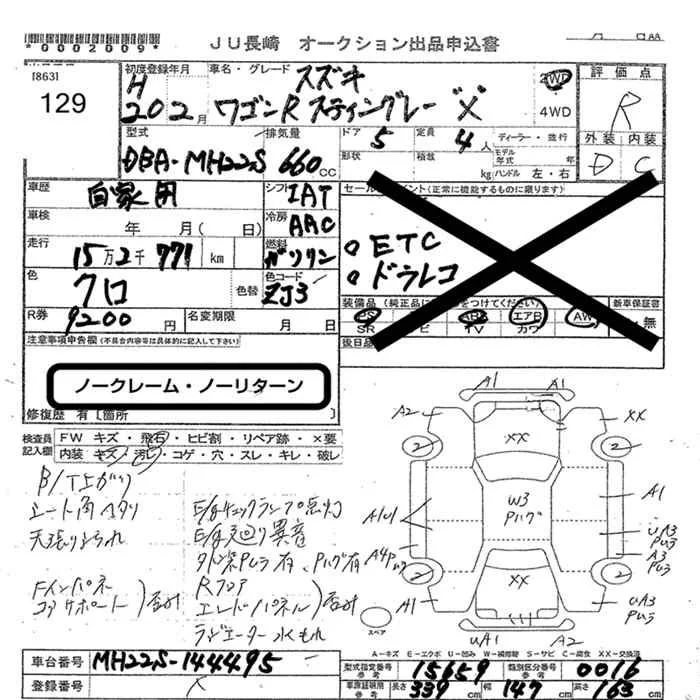 *0002009*
JU長崎 オークション出品申込書
[863]
129
初度登録年月
H
20 2月
車名・グレード
スズキ
ワゴンR スティングレー "X"
2WD
4WD
評価点
R
外装 内装
D C
型式
DBA-MH22S
排気量
660cc
ドア
5
定員
4人
形状
積載
kg
ディーラー・並行
モデル年式 年
ハンドル 左・右
車歴
自家用
シフト
IAT
車検
年 月( 日)
冷房
AAC
走行
15万2千771 km
燃料
ガソリン
色
クロ
色替
色コード
ZJ3
R券
9200円
名変期限
月 日
(正常に機能するものに限ります)
ETC
ドラレコ
装備品
PS
エアB
AW
SR
TV
カワ
新車保証書
無
後日品
注意事項申告欄 (不具合内容等は具体的に記入して下さい)
ノークレーム・ノーリターン
修復歴 有[箇所
検査員記入欄
FW キズ・飛石・ヒビ割・リペア跡・×要
内装 キズ・汚レ・コゲ・穴・スレ・キレ・破レ
B/T上がり
シート角ヘタリ
天張りよごれ
Fインパネ
コアサポート
E/gチェックランプ点灯
E/g廻り異音
Rフロア
エンドパネル
ラジエーター水もれ
A1 A1
A2
XX
XX
2 2
W3
Pハゲ
A1
A1U1
UA3
Pムラ
A4P
A3
Pムラ
2 2
XX
A1
UA3
Pムラ
スペア
UA1
A2
A-キズ E-エクボ U-凹み W-補修跡 S-サビ C-腐食 XX-交換済
車台番号
MH22S-144495
登録番号
型式指定番号
参考
15659
類別区分番号
参考
0016
長さ
339cm
幅
147cm
高さ
163cm